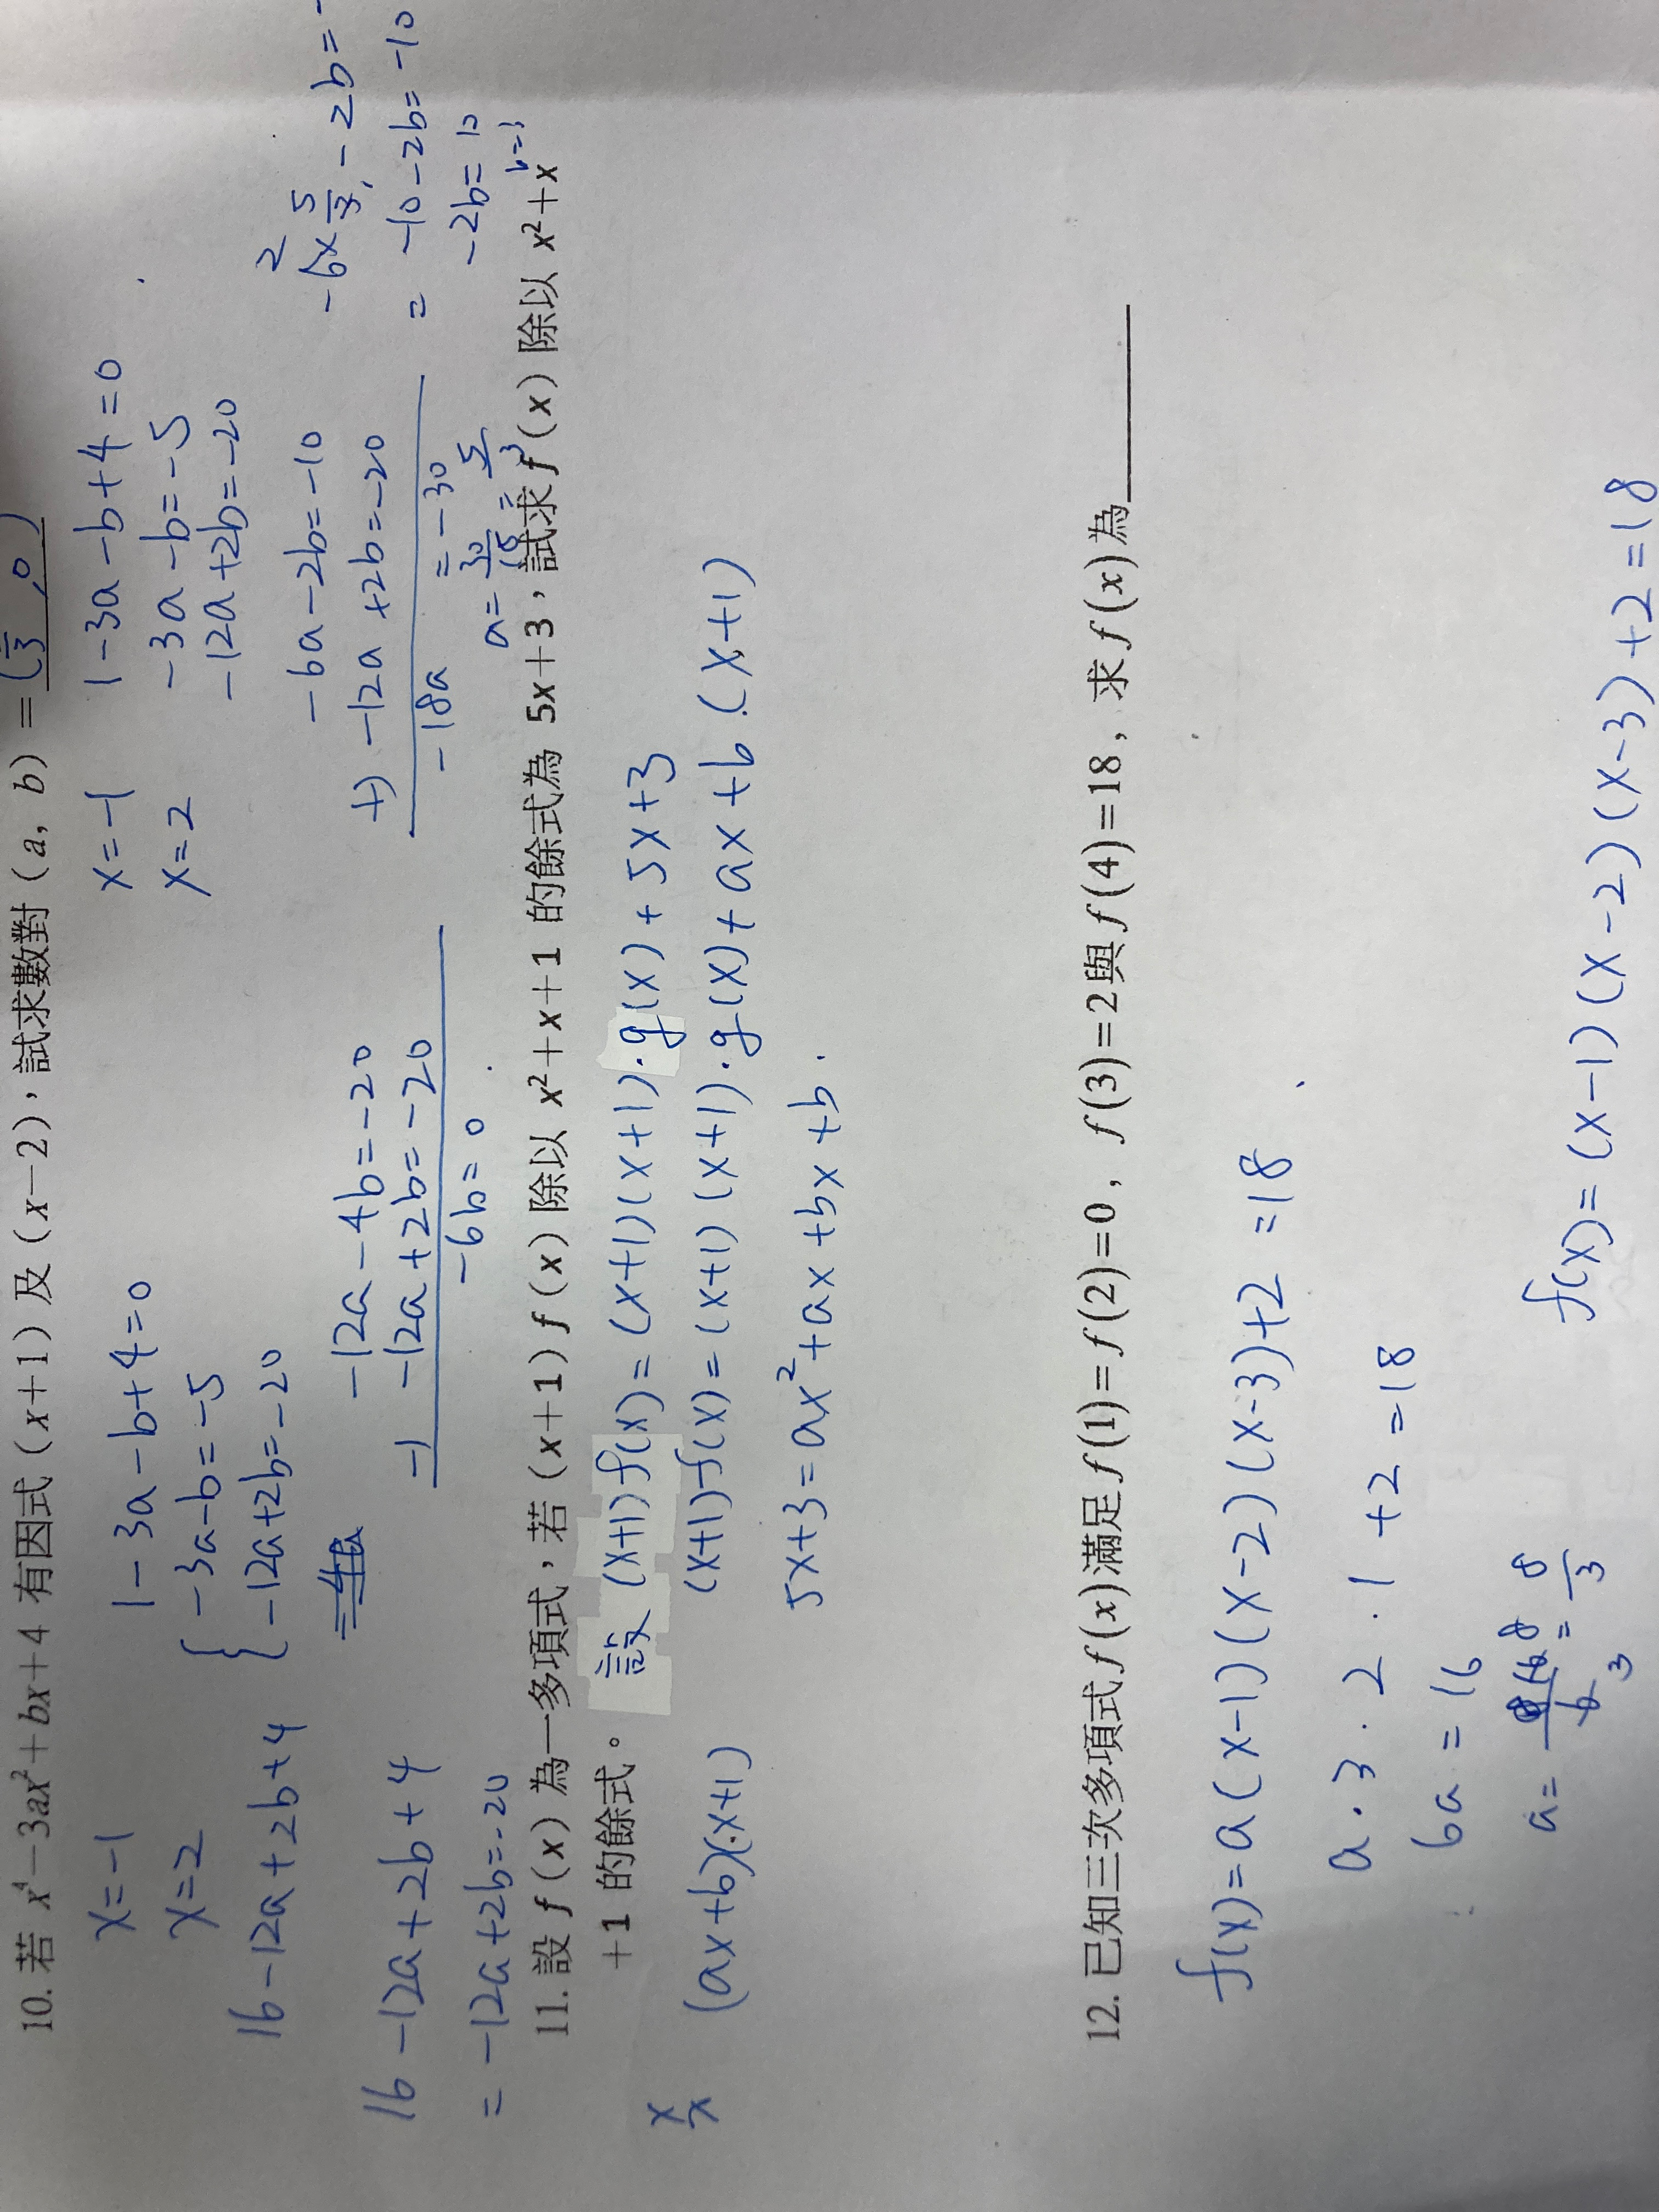 10. 若 x⁴－3ax²＋bx＋4 有因式（x＋1）及（x－2），試求數對（a, b）＝
x=-1
x=2
16-12a+2b+4
16-12a+2b+4
=-12a+2b=-20
1-3a-b+4=0
{ -3a-b=-5
-12a+2b=-20
-12a-4b=-20
-) -12a+2b=-20
-6b=0
x=-1 1-3a-b+4=0
x=2 -3a-b=-5
-12a+2b=-20
-6a-2b=-10
+) -12a+2b=-20
-18a =-30
-10-2b=-10
11. 設 f（x）為一多項式，若（x＋1）f（x）除以 x²＋x＋1 的餘式為 5x＋3，試求 f（x）除以 x²＋x
＋1 的餘式。
設 (x+1)f(x)=(x+1)(x+1)·g(x)+5x+3
(ax+b)(x+1)
(x+1)f(x)=(x+1)(x+1)·g(x)+ax+b·(x+1)
5x+3=ax²+ax+bx+b.
12. 已知三次多項式 f(x)滿足 f(1)＝f(2)＝0，f(3)＝2與 f(4)＝18，求 f(x)為
f(x)=a(x-1)(x-2)(x-3)+2=18
a·3·2·1+2=18
6a=16
f(x)=(x-1)(x-2)(x-3)+2=18